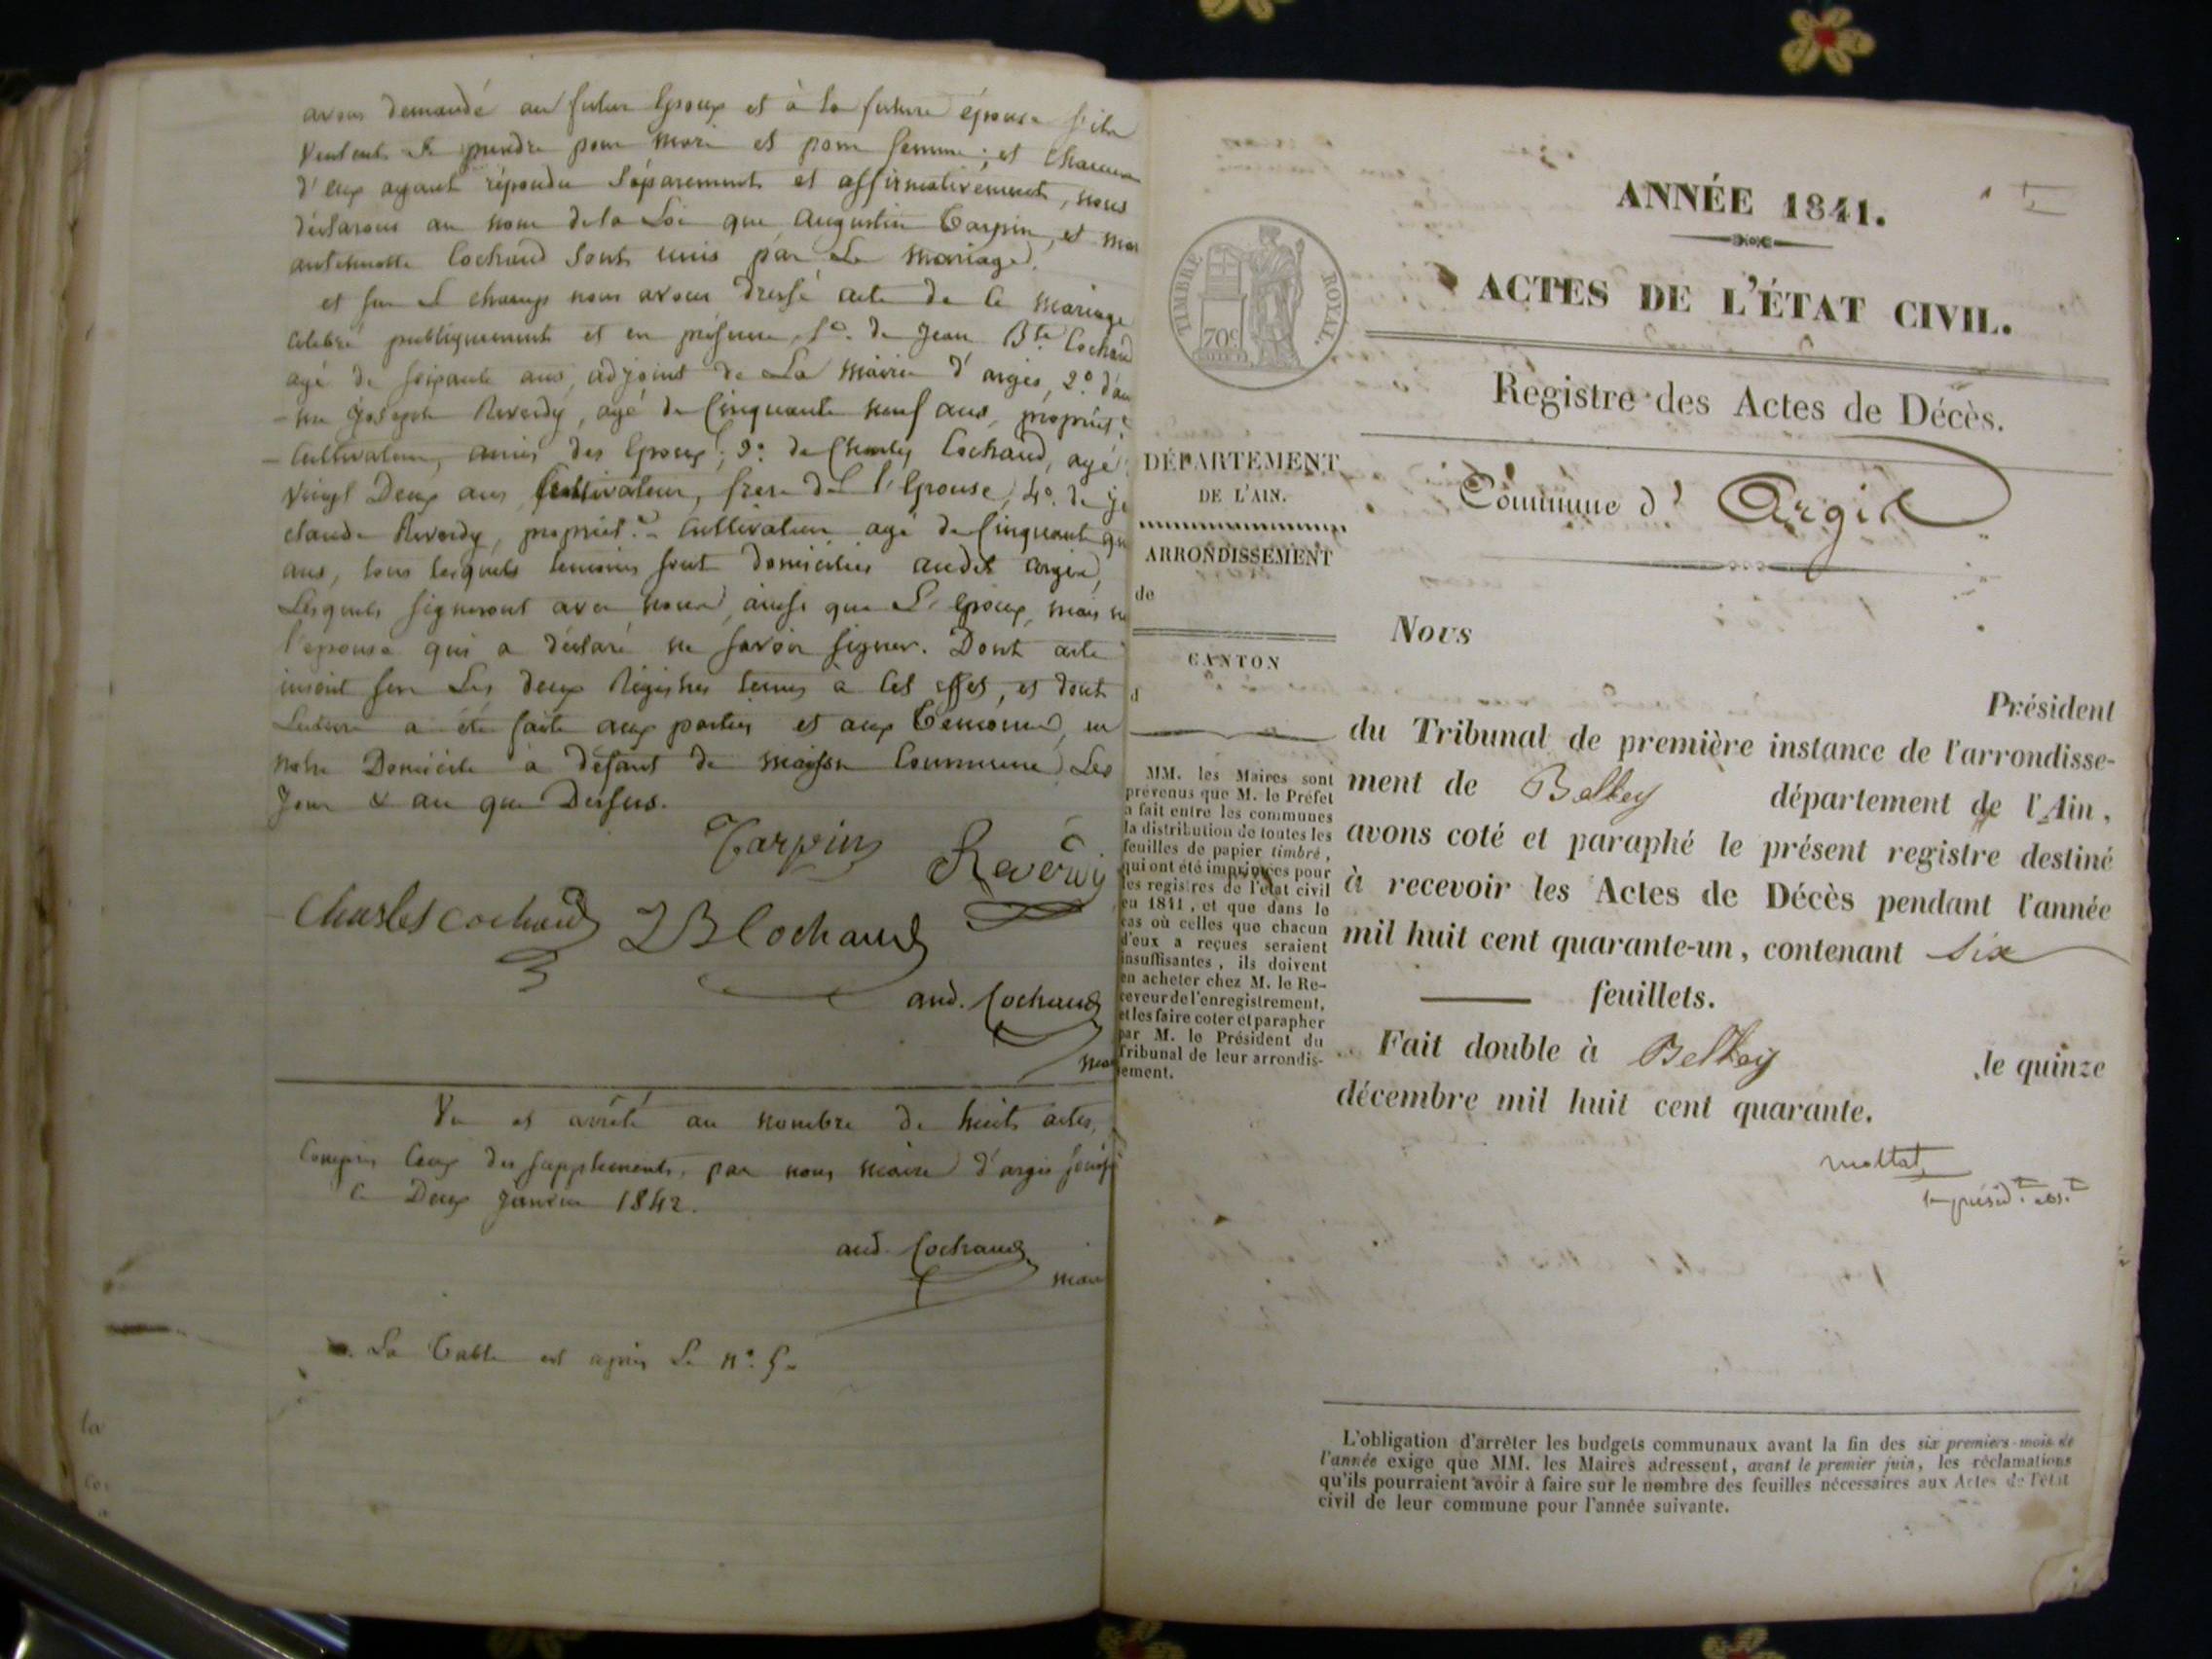 avons demandé au futur Epoux et à la future épouse s'ils
veulent se prendre pour mari et pour femme; et chacun
d'eux ayant répondu séparement et affirmativement, nous
déclarons au nom de la Loi que Augustin Tarpin, et mar
antoinette Cochand sont unis par Le mariage.
et sur L champs nous avons dressé acte de ce mariage
célébré publiquement et en présence, 1º. de Jean Bte Cochand
agé de soixante ans, adjoint de La Mairie d'argis, 2º. d'an
Joseph Reverdy, agé de Cinquante neuf ans, propriét.
Cultivateur, amis des Epoux; 3º. de Charles Cochand, agé
vingt Deux ans Cultivateur, frere de l'Epouse, 4º. de
claude Reverdy, propriét. Cultivateur agé de Cinquante
ans, tous lesquels temoins sont domiciliés audit argis,
Lesquels signeront avec nous, ainsi que L'epoux, mais
l'epouse qui a déclaré ne savoir signer. Dont acte
inscrit sur Les deux Régistres tenus à cet effet, et dont
Lecture a été faite aux parties et aux Temoins, en
notre Domicile à défaut de maison Commune Les
Jour & an que Dessus.
Tarpin
Reverdy
Charles Cochand
JB Cochand
and. Cochand
mai
Vu et arrêté au nombre de huit actes,
Compris Ceux des supplements, par nous maire d'argis
le Deux Janvier 1842.
and. Cochand
mair
La Table est après Le nº. 5.
ANNÉE 1841.
ACTES DE L'ÉTAT CIVIL.
TIMBRE ROYAL.
70c
Registre des Actes de Décès.
DÉPARTEMENT
DE L'AIN.
Commune d' Argis
ARRONDISSEMENT
de
CANTON
d
MM. les Maires sont
prévenus que M. le Préfet
a fait entre les communes
la distribution de toutes les
feuilles de papier timbré,
qui ont été imprimées pour
les registres de l'état civil
en 1841, et que dans le
cas où celles que chacun
d'eux a reçues seraient
insuffisantes, ils doivent
en acheter chez M. le Re-
ceveur de l'enregistrement,
et les faire coter et parapher
par M. le Président du
Tribunal de leur arrondis-
sement.
Nous
Président
du Tribunal de première instance de l'arrondisse-
ment de Belley département de l'Ain,
avons coté et paraphé le présent registre destiné
à recevoir les Actes de Décès pendant l'année
mil huit cent quarante-un, contenant six
feuillets.
Fait double à Belley le quinze
décembre mil huit cent quarante.
L'obligation d'arrêter les budgets communaux avant la fin des six premiers mois de
l'année exige que MM. les Maires adressent, avant le premier juin, les réclamations
qu'ils pourraient avoir à faire sur le nombre des feuilles nécessaires aux Actes de l'état
civil de leur commune pour l'année suivante.